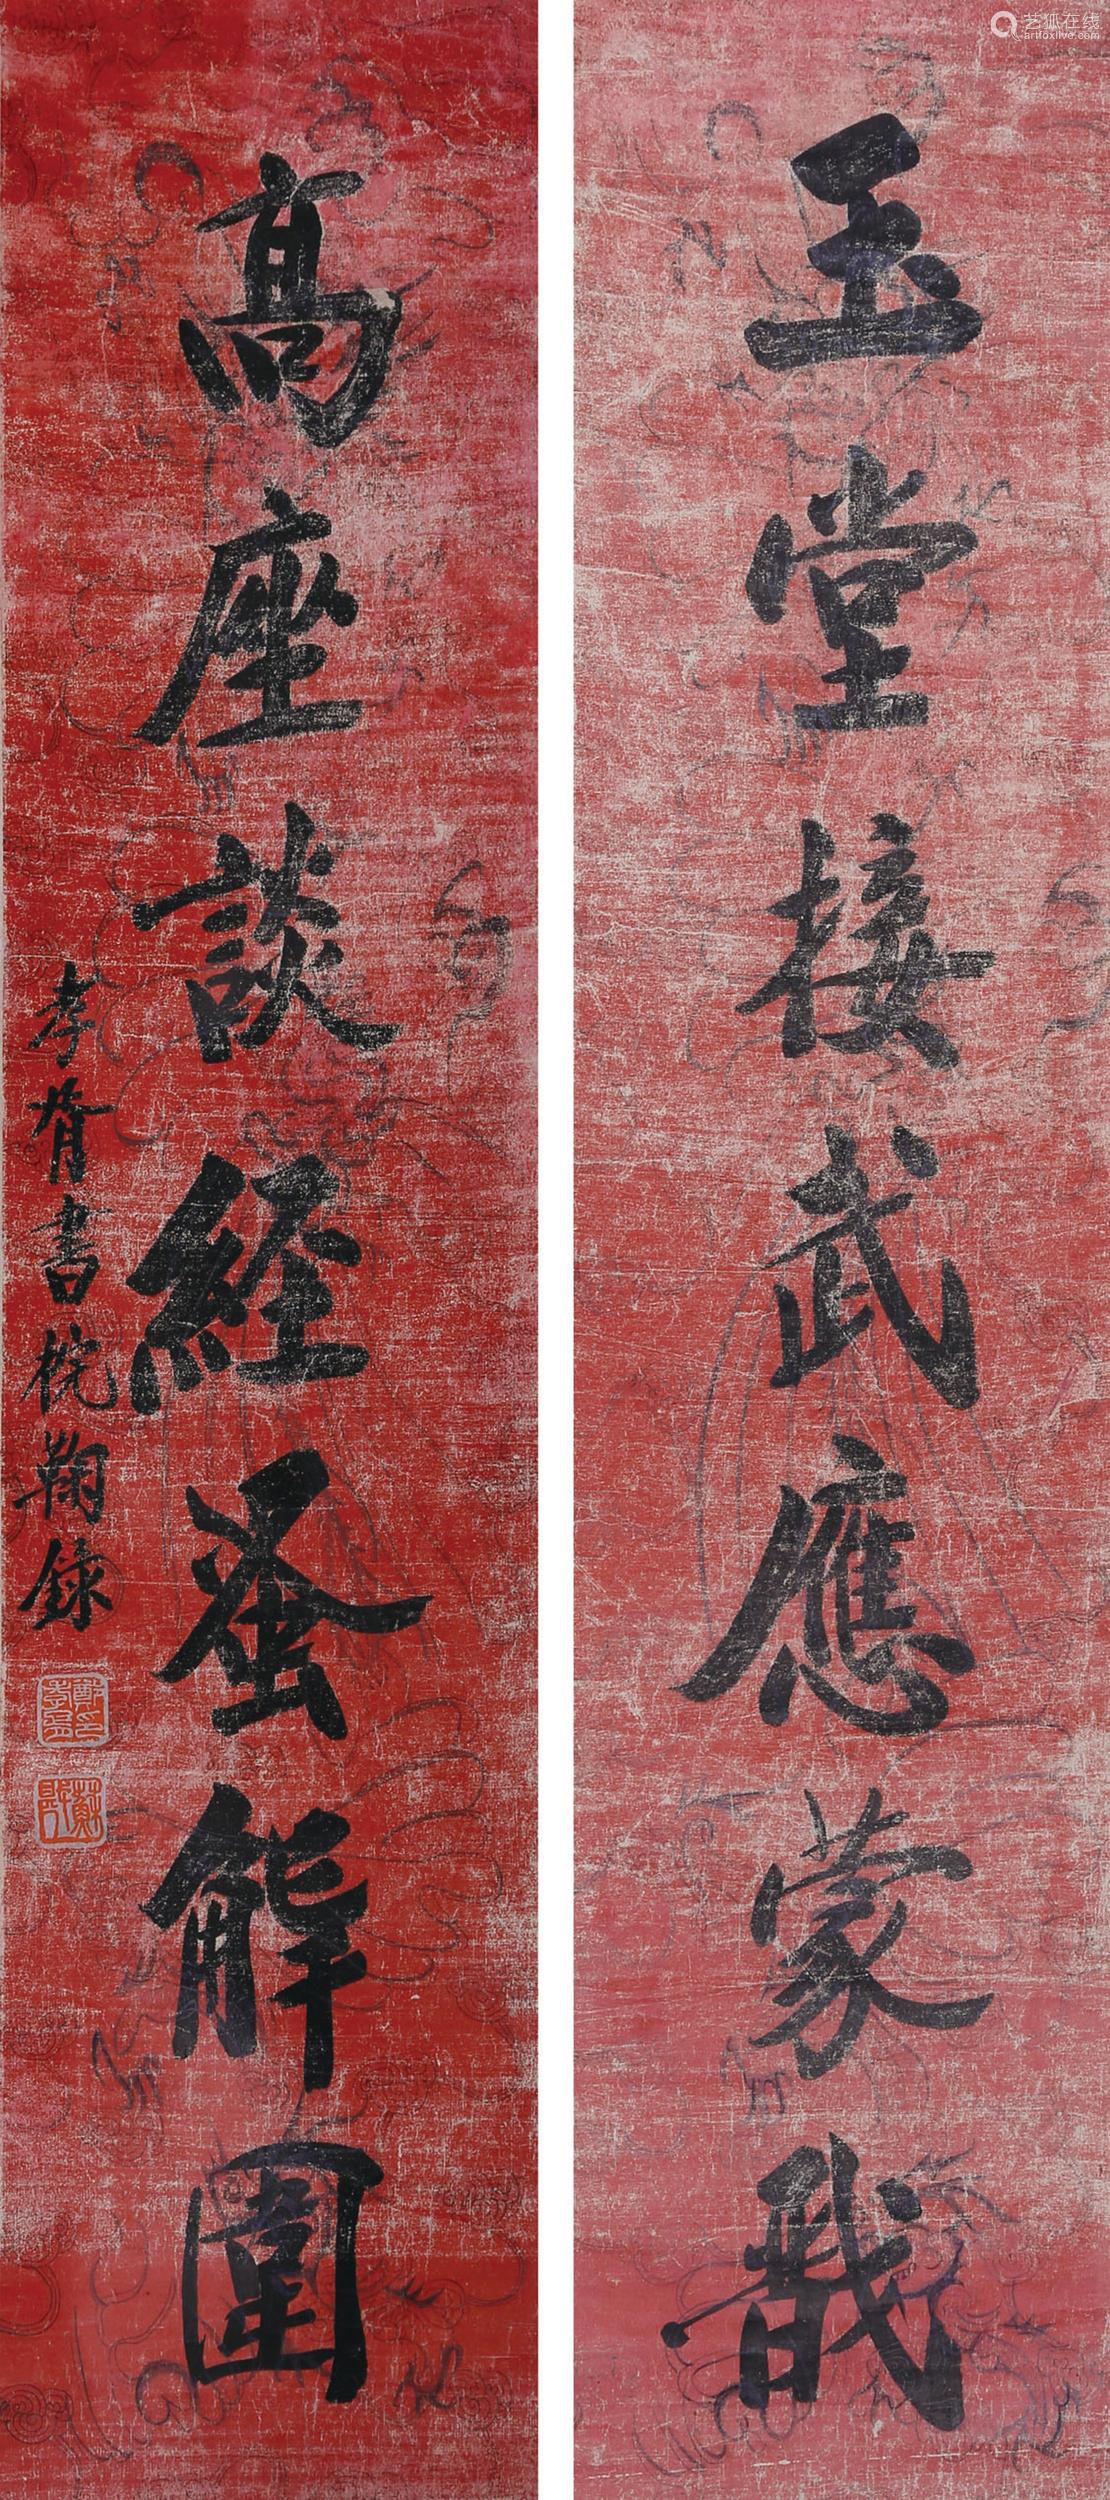 艺狐在线
artfoxlive.com
玉堂接武應蒙
高座談經蚤解圍
孝胥書梡鞠録
鄭印孝胥